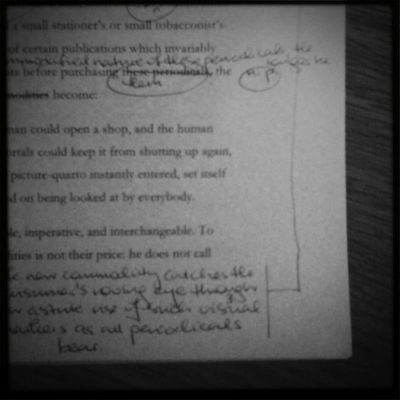 a small stationer's or small tobacconist's
of certain publications which invariably
nature of these periodicals the
before purchasing these periodicals, the
them
become:
man could open a shop, and the human
could keep it from shutting up again,
picture-quarto instantly entered, set itself
on being looked at by everybody.
imperative, and interchangeable. To
is not their price: he does not call
new commodity catches the
roving eye through
astute use of such visual
as all periodicals
bear.